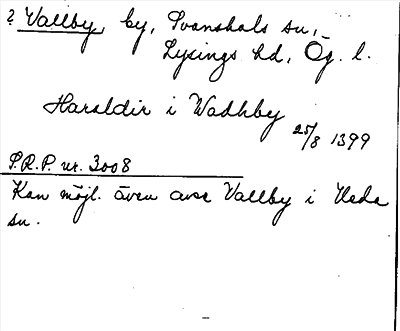 ? Vallby, by, Svanshals sn,
Lysings hd, Ög. l.
Haraldir i Wadhby
25/8 1399
S.R.P. nr. 3008
Kan möjl. även avse Vallby i Heda
sn.